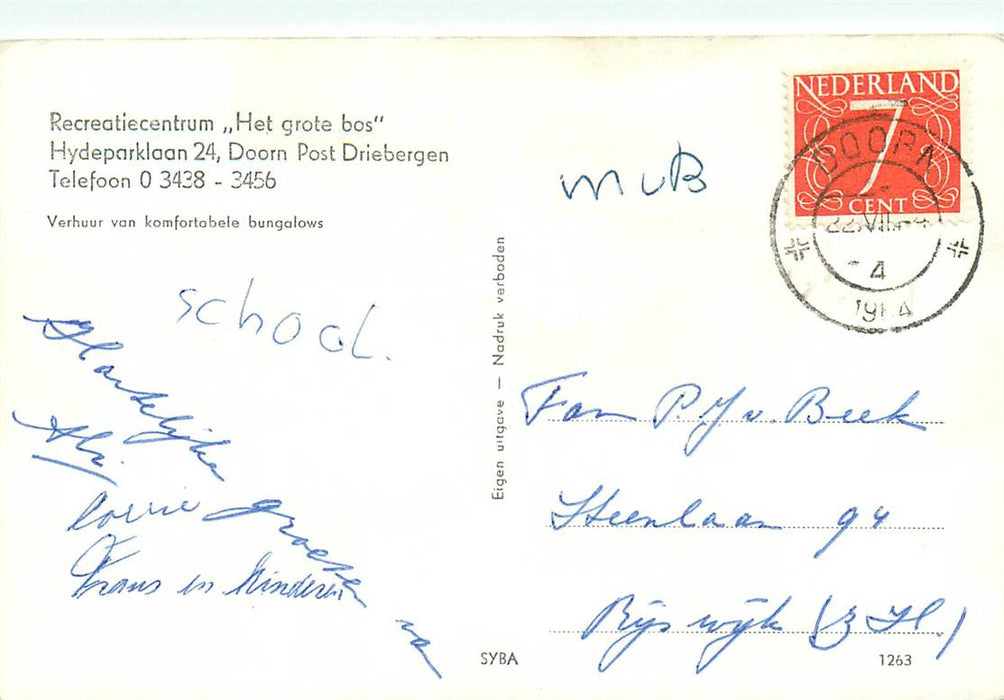 Recreatiecentrum „Het grote bos"
Hydeparklaan 24, Doorn Post Driebergen
Telefoon 0 3438 - 3456
Verhuur van komfortabele bungalows
NEDERLAND
7
CENT
DOORN
4
MvB
school.
Hartelijke groeten van
Corrie
Frans en kinderen
Eigen uitgave — Nadruk verboden
Fam P.J v. Beek
Steenlaan 94
Rijswijk (Z H.)
SYBA
1263